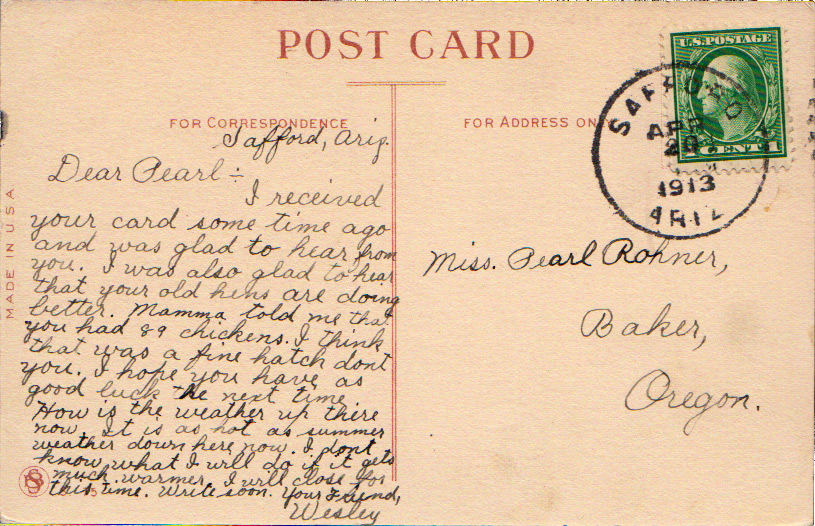 POST CARD
U.S. POSTAGE
SAFFORD
APR
20
1913
ARIZ
1 CENT 1
FOR CORRESPONDENCE
FOR ADDRESS ON
MADE IN USA
Safford, Ariz.
Dear Pearl –
I received
your card some time ago
and was glad to hear from
you. I was also glad to hear
that your old hens are doing
better. Mamma told me that
you had 89 chickens. I think
that was a fine hatch dont
you. I hope you have as
good luck the next time
How is the weather up there
now. It is as hot as summer
weather down here now. I dont
know what I will do if it gets
much warmer. I will close for
this time. Write soon. Your Friend,
Wesley
Miss. Pearl Rohner,
Baker,
Oregon.